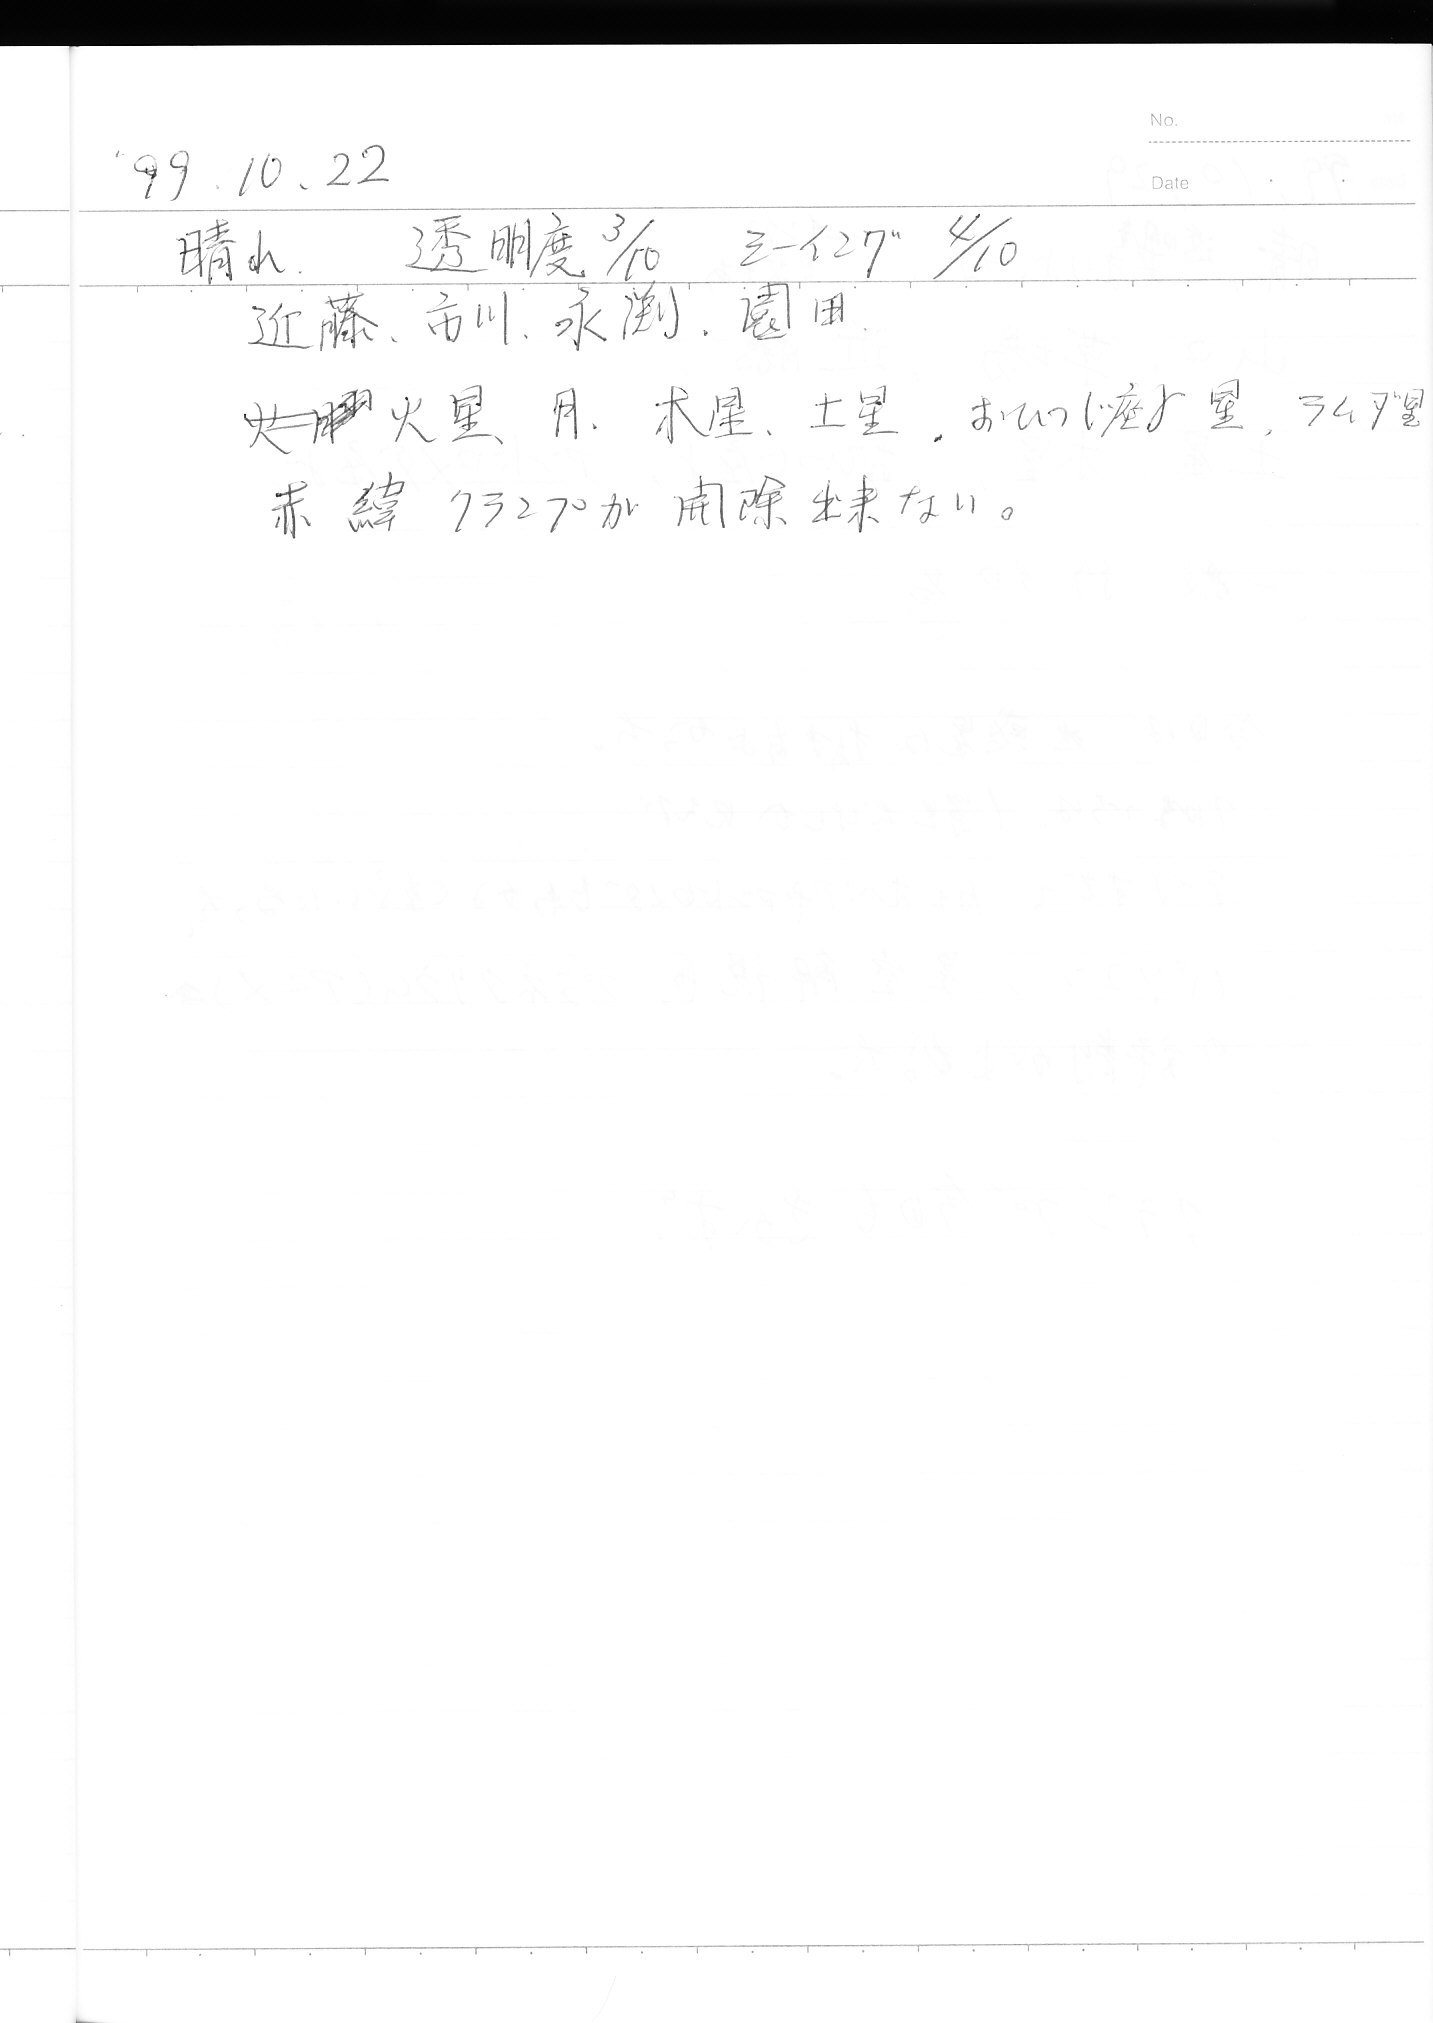 No.
'99.10.22
Date
晴れ. 透明度 3/10 シーイング 4/10
近藤、市川、永渕、園田.
火星、月、木星、土星、おひつじ座γ星、ラムダ星
赤緯クランプが開除出来ない。